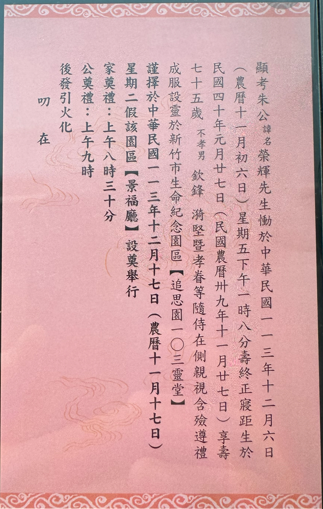 顯考朱公諱名榮輝先生慟於中華民國一一三年十二月六日
（農曆十一月初六日）星期五下午一時八分壽終正寢距生於
民國四十年元月廿七日（民國農曆卅九年十一月廿七日）享壽
七十五歲 不孝男 欽鋒 漪堅暨孝眷等隨侍在側親視含殮遵禮
成服設靈於新竹市生命紀念園區【追思園一〇三靈堂】
謹擇於中華民國一一三年十二月十七日（農曆十一月十七日）
星期二假該園區【景福廳】設奠舉行
家奠禮：上午八時三十分
公奠禮：上午九時
後發引火化
叨 在